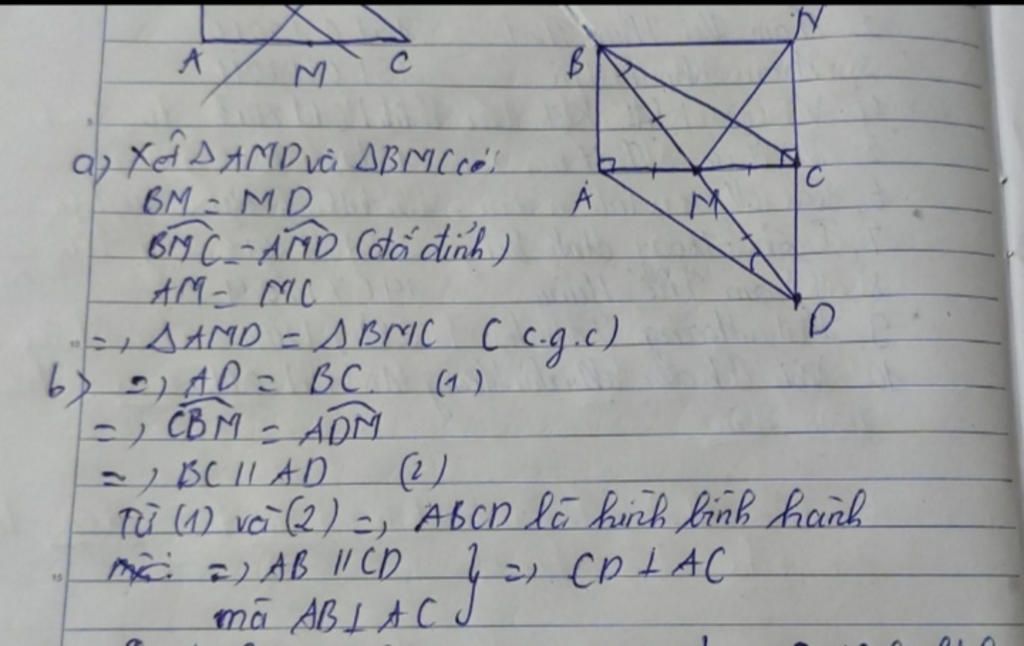 A M C
B N
A M C
D
a, Xét ΔAMD và ΔBMC có:
BM = MD
BMC = AMD (đối đỉnh)
AM = MC
=, ΔAMD = ΔBMC (c.g.c)
b) =, AD = BC (1)
=, CBM = ADM
=, BC // AD (2)
Từ (1) và (2) =, ABCD là hình bình hành
=, AB // CD } =, CD ⊥ AC
mà AB ⊥ AC